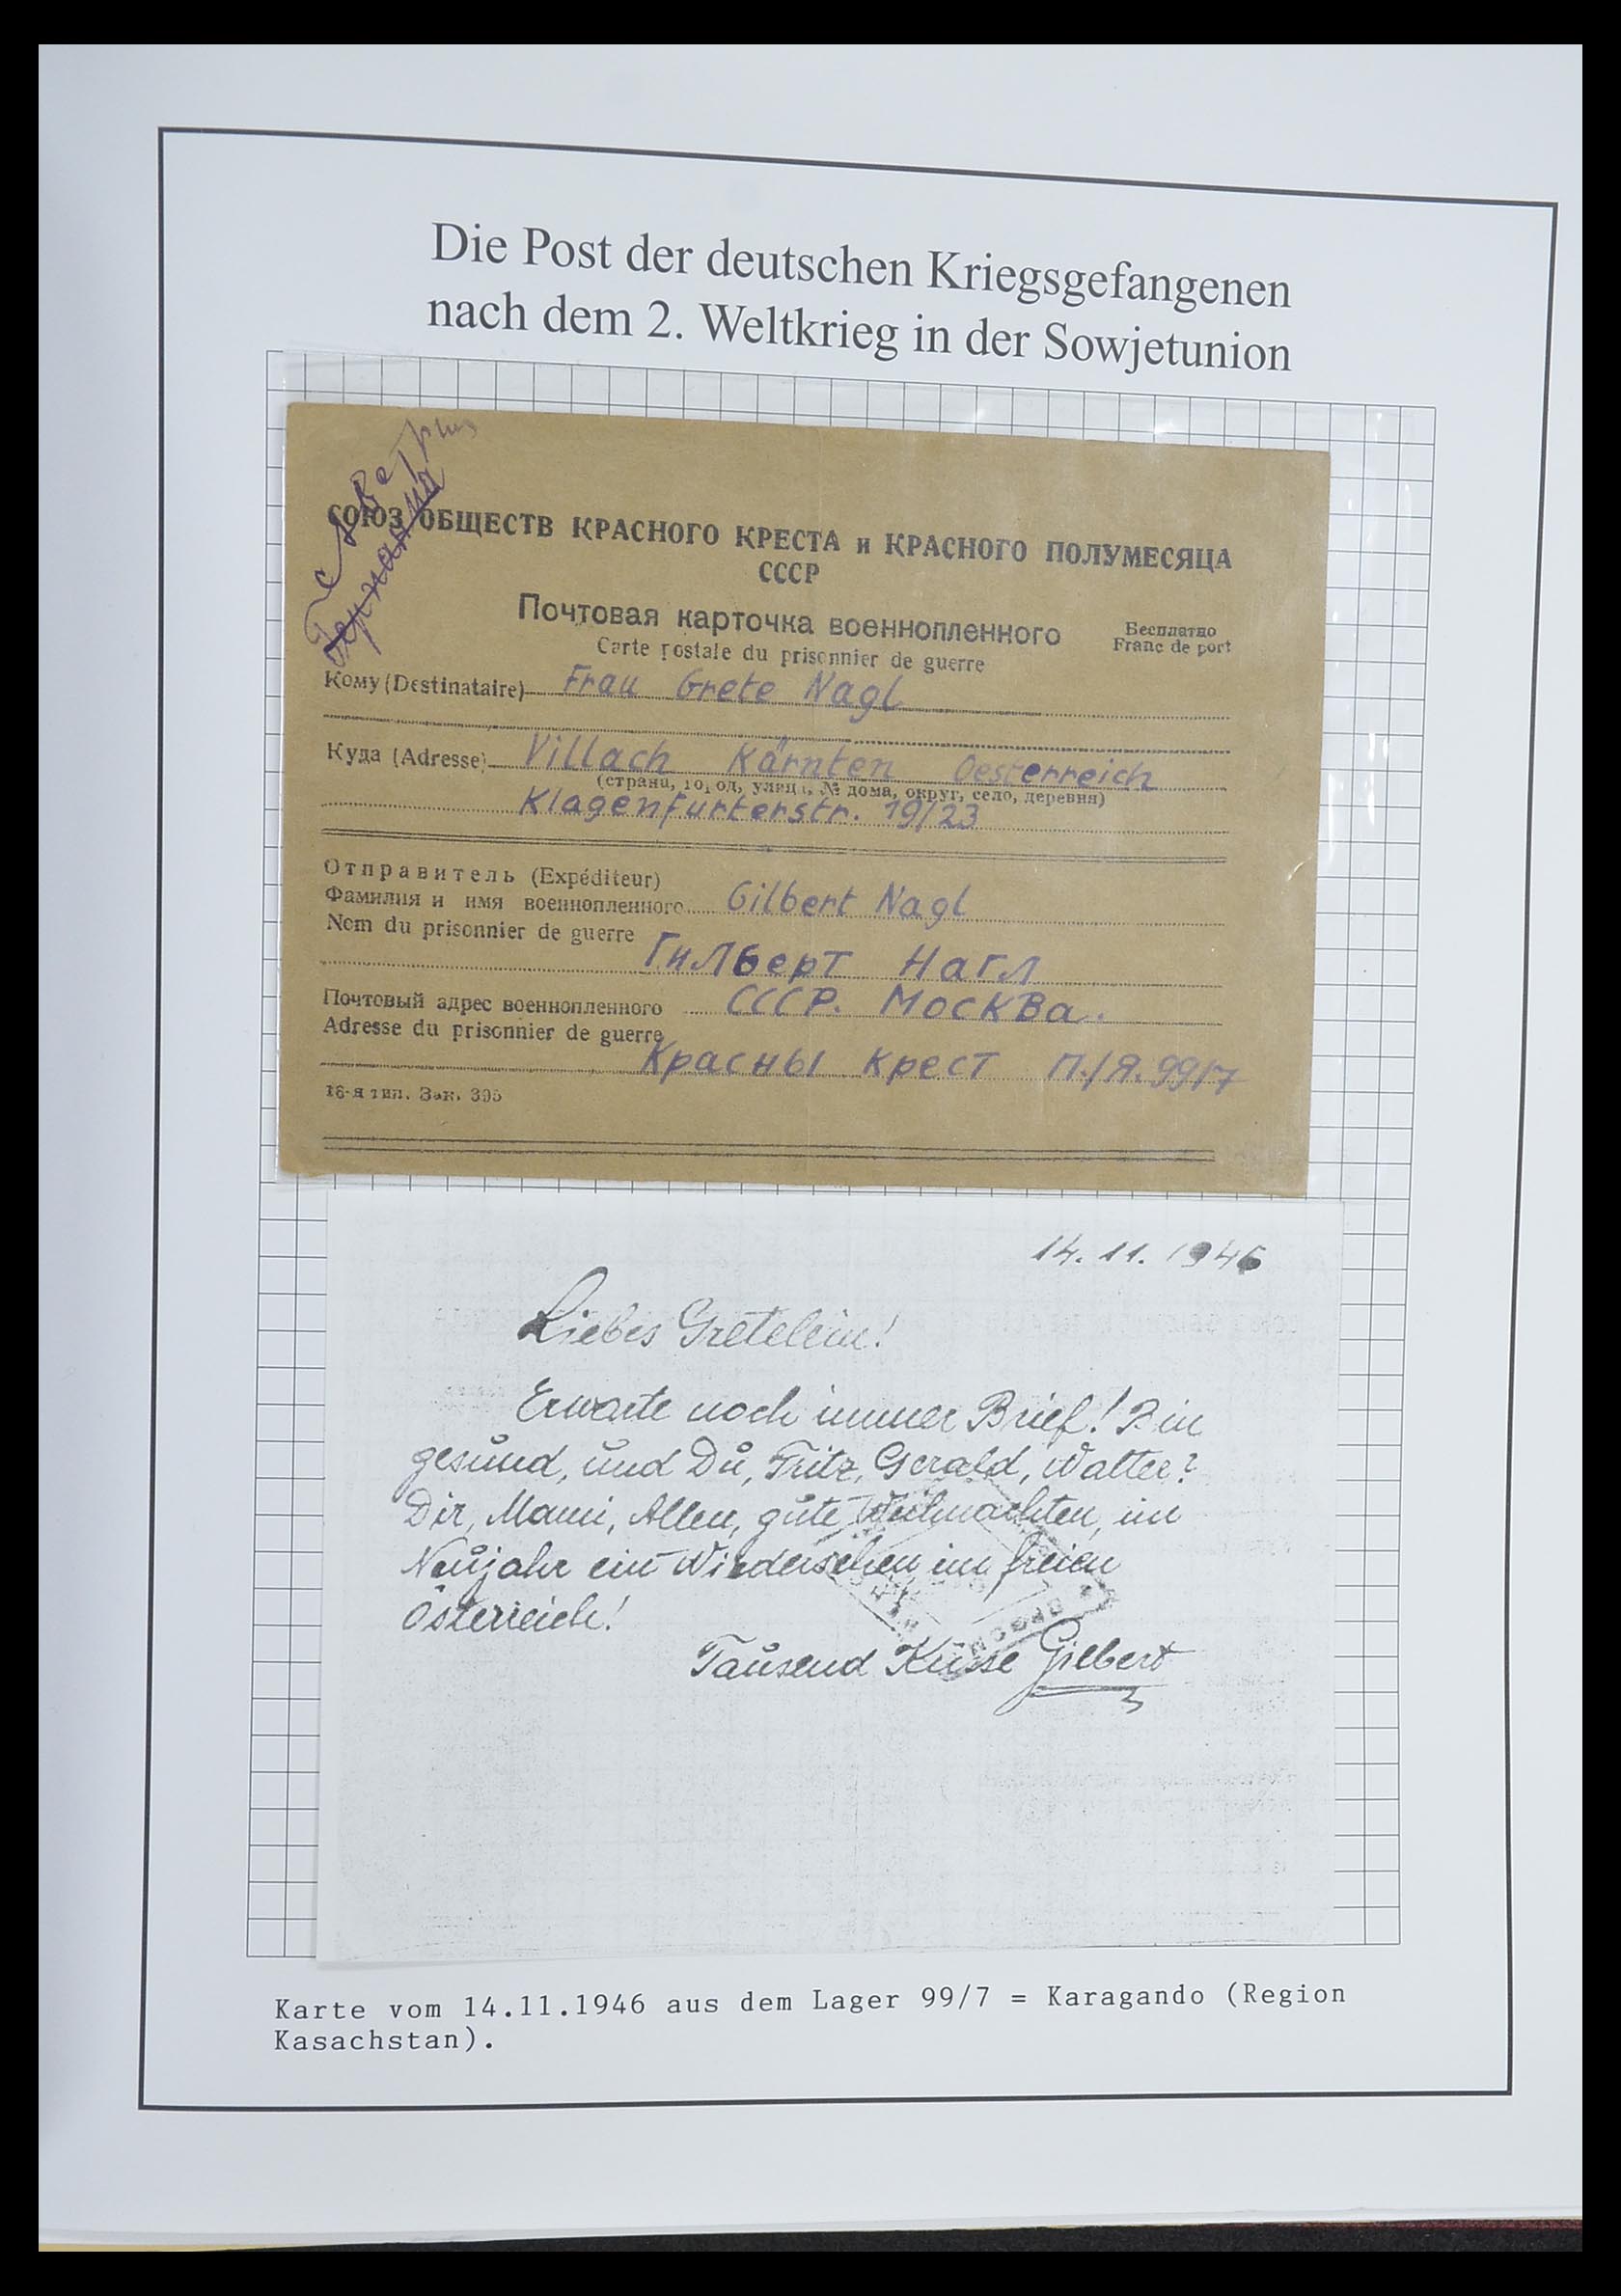 Die Post der deutschen Kriegsgefangenen
nach dem 2. Weltkrieg in der Sowjetunion
Германия
СОЮЗ ОБЩЕСТВ КРАСНОГО КРЕСТА и КРАСНОГО ПОЛУМЕСЯЦА
СССР
Почтовая карточка военнопленного
Бесплатно
Carte postale du prisonnier de guerre
Franc de port
Кому (Destinataire) Frau Grete Nagl
Куда (Adresse) Villach Kärnten Oesterreich
(страна, город, улица, № дома, округ, село, деревня)
Klagenfurterstr. 19/23
Отправитель (Expéditeur)
Фамилия и имя военнопленного Gilbert Nagl
Nom du prisonnier de guerre
Гилберт Нагл
Почтовый адрес военнопленного СССР. Москва.
Adresse du prisonnier de guerre
Красны Крест П./Я. 99/7
16-я тип. Зак. 395
14. 11. 1946
Liebes Gretelein!
Erwarte noch immer Brief! Bin
gesund, und Du, Fritz, Gerald, Walter?
Dir, Mami, Allen, gute Weihnachten, im
Neujahr ein Wiedersehen im freien
Österreich!
Tausend Küsse Gilbert
Karte vom 14.11.1946 aus dem Lager 99/7 = Karagando (Region
Kasachstan).